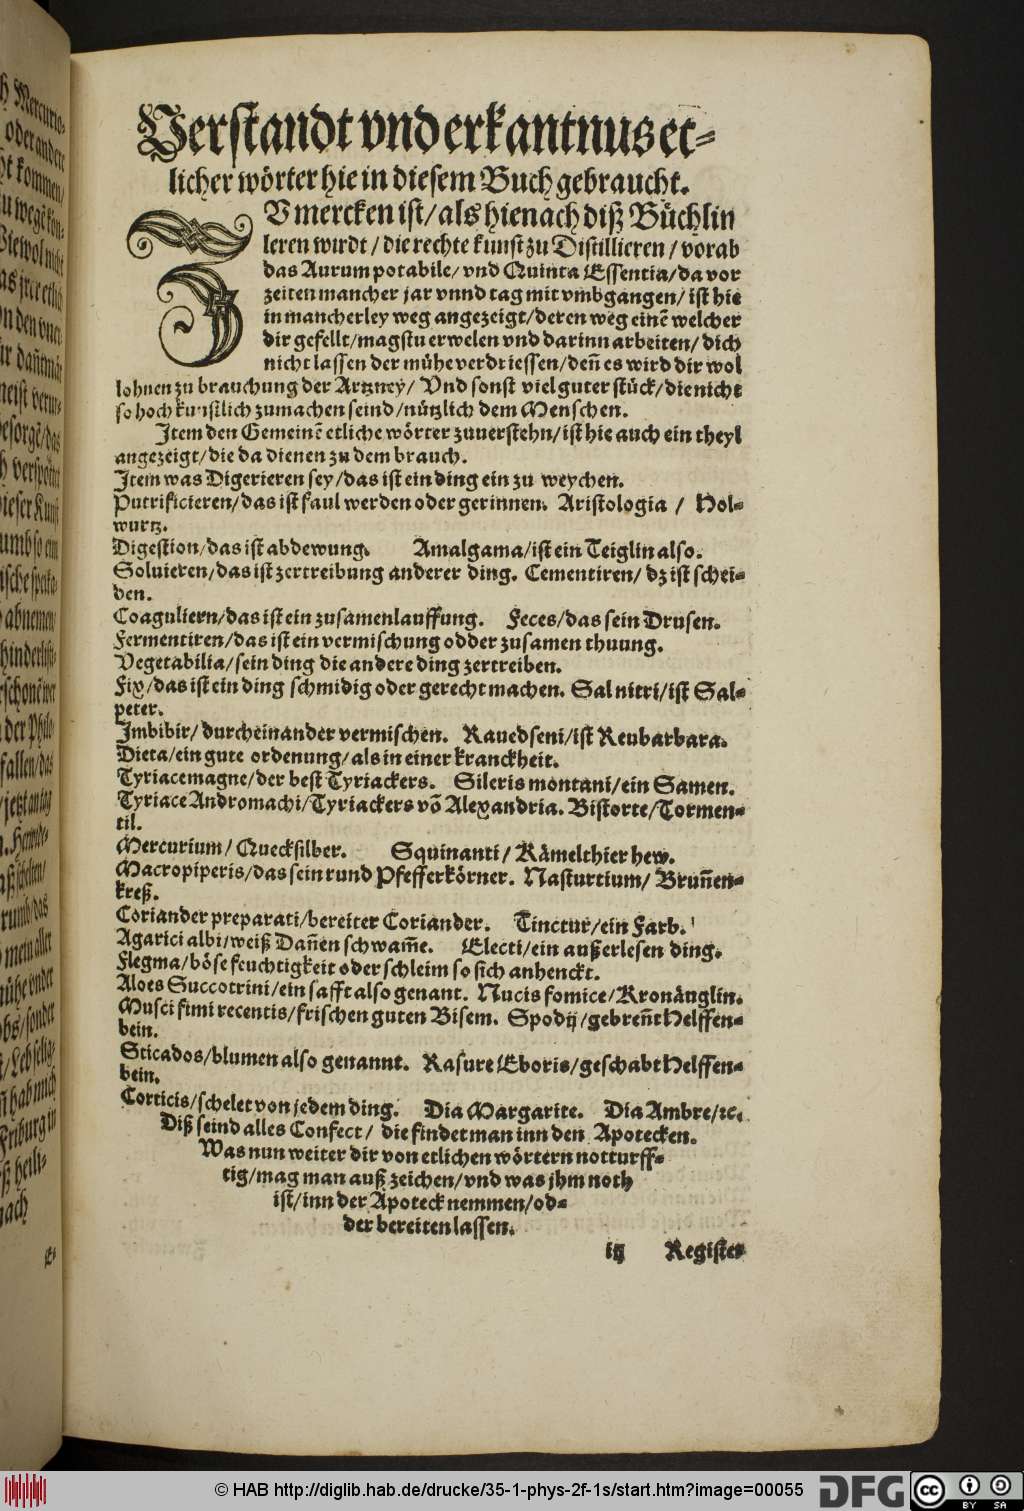 Verstandt vnd erkantnus et-
licher wörter hie in diesem Buch gebraucht.
ZV mercken ist/ als hienach diß Büchlin
leren wirdt / die rechte kunst zu Distillieren / vorab
das Aurum potabile/ vnd Quinta Essentia/ da vor
zeiten mancher jar vnnd tag mit vmbgangen/ ist hie
in mancherley weg angezeigt/ deren weg einẽ welcher
dir gefellt/ magstu erwelen vnd darinn arbeiten/ dich
nicht lassen der mühe verdriessen/ deñ es wird dir wol
lohnen zu brauchung der Artzney/ Vnd sonst viel guter stück/ die nicht
so hoch künstlich zumachen seind/ nützlich dem Menschen.
Item den Gemeinẽ etliche wörter zuuerstehn/ ist hie auch ein theyl
angezeigt/ die da dienen zu dem brauch.
Item was Digerieren sey/ das ist ein ding ein zu weychen.
Putrificieren/ das ist faul werden oder gerinnen. Aristologia / Hol-
wurtz.
Digestion/ das ist abdewung. Amalgama/ ist ein Teiglin also.
Soluieren/ das ist zertreibung anderer ding. Cementiren/ dz ist schei-
den.
Coaguliern/ das ist ein zusamenlauffung. Feces/ das sein Drusen.
Fermentiren/ das ist ein vermischung odder zusamen thuung.
Vegetabilia/ sein ding die andere ding zertreiben.
Fix/ das ist ein ding schmidig oder gerecht machen. Sal nitri/ ist Sal-
peter.
Imbibir/ durcheinander vermischen. Rauedseni/ ist Reubarbara.
Dieta/ ein gute ordenung/ als in einer kranckheit.
Tyriacemagne/ der best Tyriackers. Sileris montani/ ein Samen.
Tyriace Andromachi/ Tyriackers võ Alexandria. Bistorte/ Tormen-
til.
Mercurium/ Quecksilber. Squinanti/ Kämelthier hew.
Macropiperis/ das sein rund Pfefferkörner. Nasturtium/ Bruñen-
kreß.
Coriander preparati/ bereiter Coriander. Tinctur/ ein Farb.
Agarici albi/ weiß Dañen schwam̃e. Electi/ ein außerlesen ding.
Flegma/ böse feuchtigkeit oder schleim so sich anhenckt.
Aloes Succotrini/ ein safft also genant. Nucis fomice/ Kronäuglin.
Musci fimi recentis/ frischen guten Bisem. Spodij/ gebreñt Helffen-
bein.
Sticados/ blumen also genannt. Rasure Eboris/ geschabt Helffen-
bein.
Corticis/ schelet von jedem ding. Dia Margarite. Dia Ambre/ ꝛc.
Diß seind alles Confect/ die findet man inn den Apotecken.
Was nun weiter dir von etlichen wörtern notturff-
tig/ mag man auß zeichen/ vnd was jhm noth
ist/ inn der Apoteck nemmen/ od-
der bereiten lassen.
ij Register
© HAB http://diglib.hab.de/drucke/35-1-phys-2f-1s/start.htm?image=00055
DFG
cc BY SA